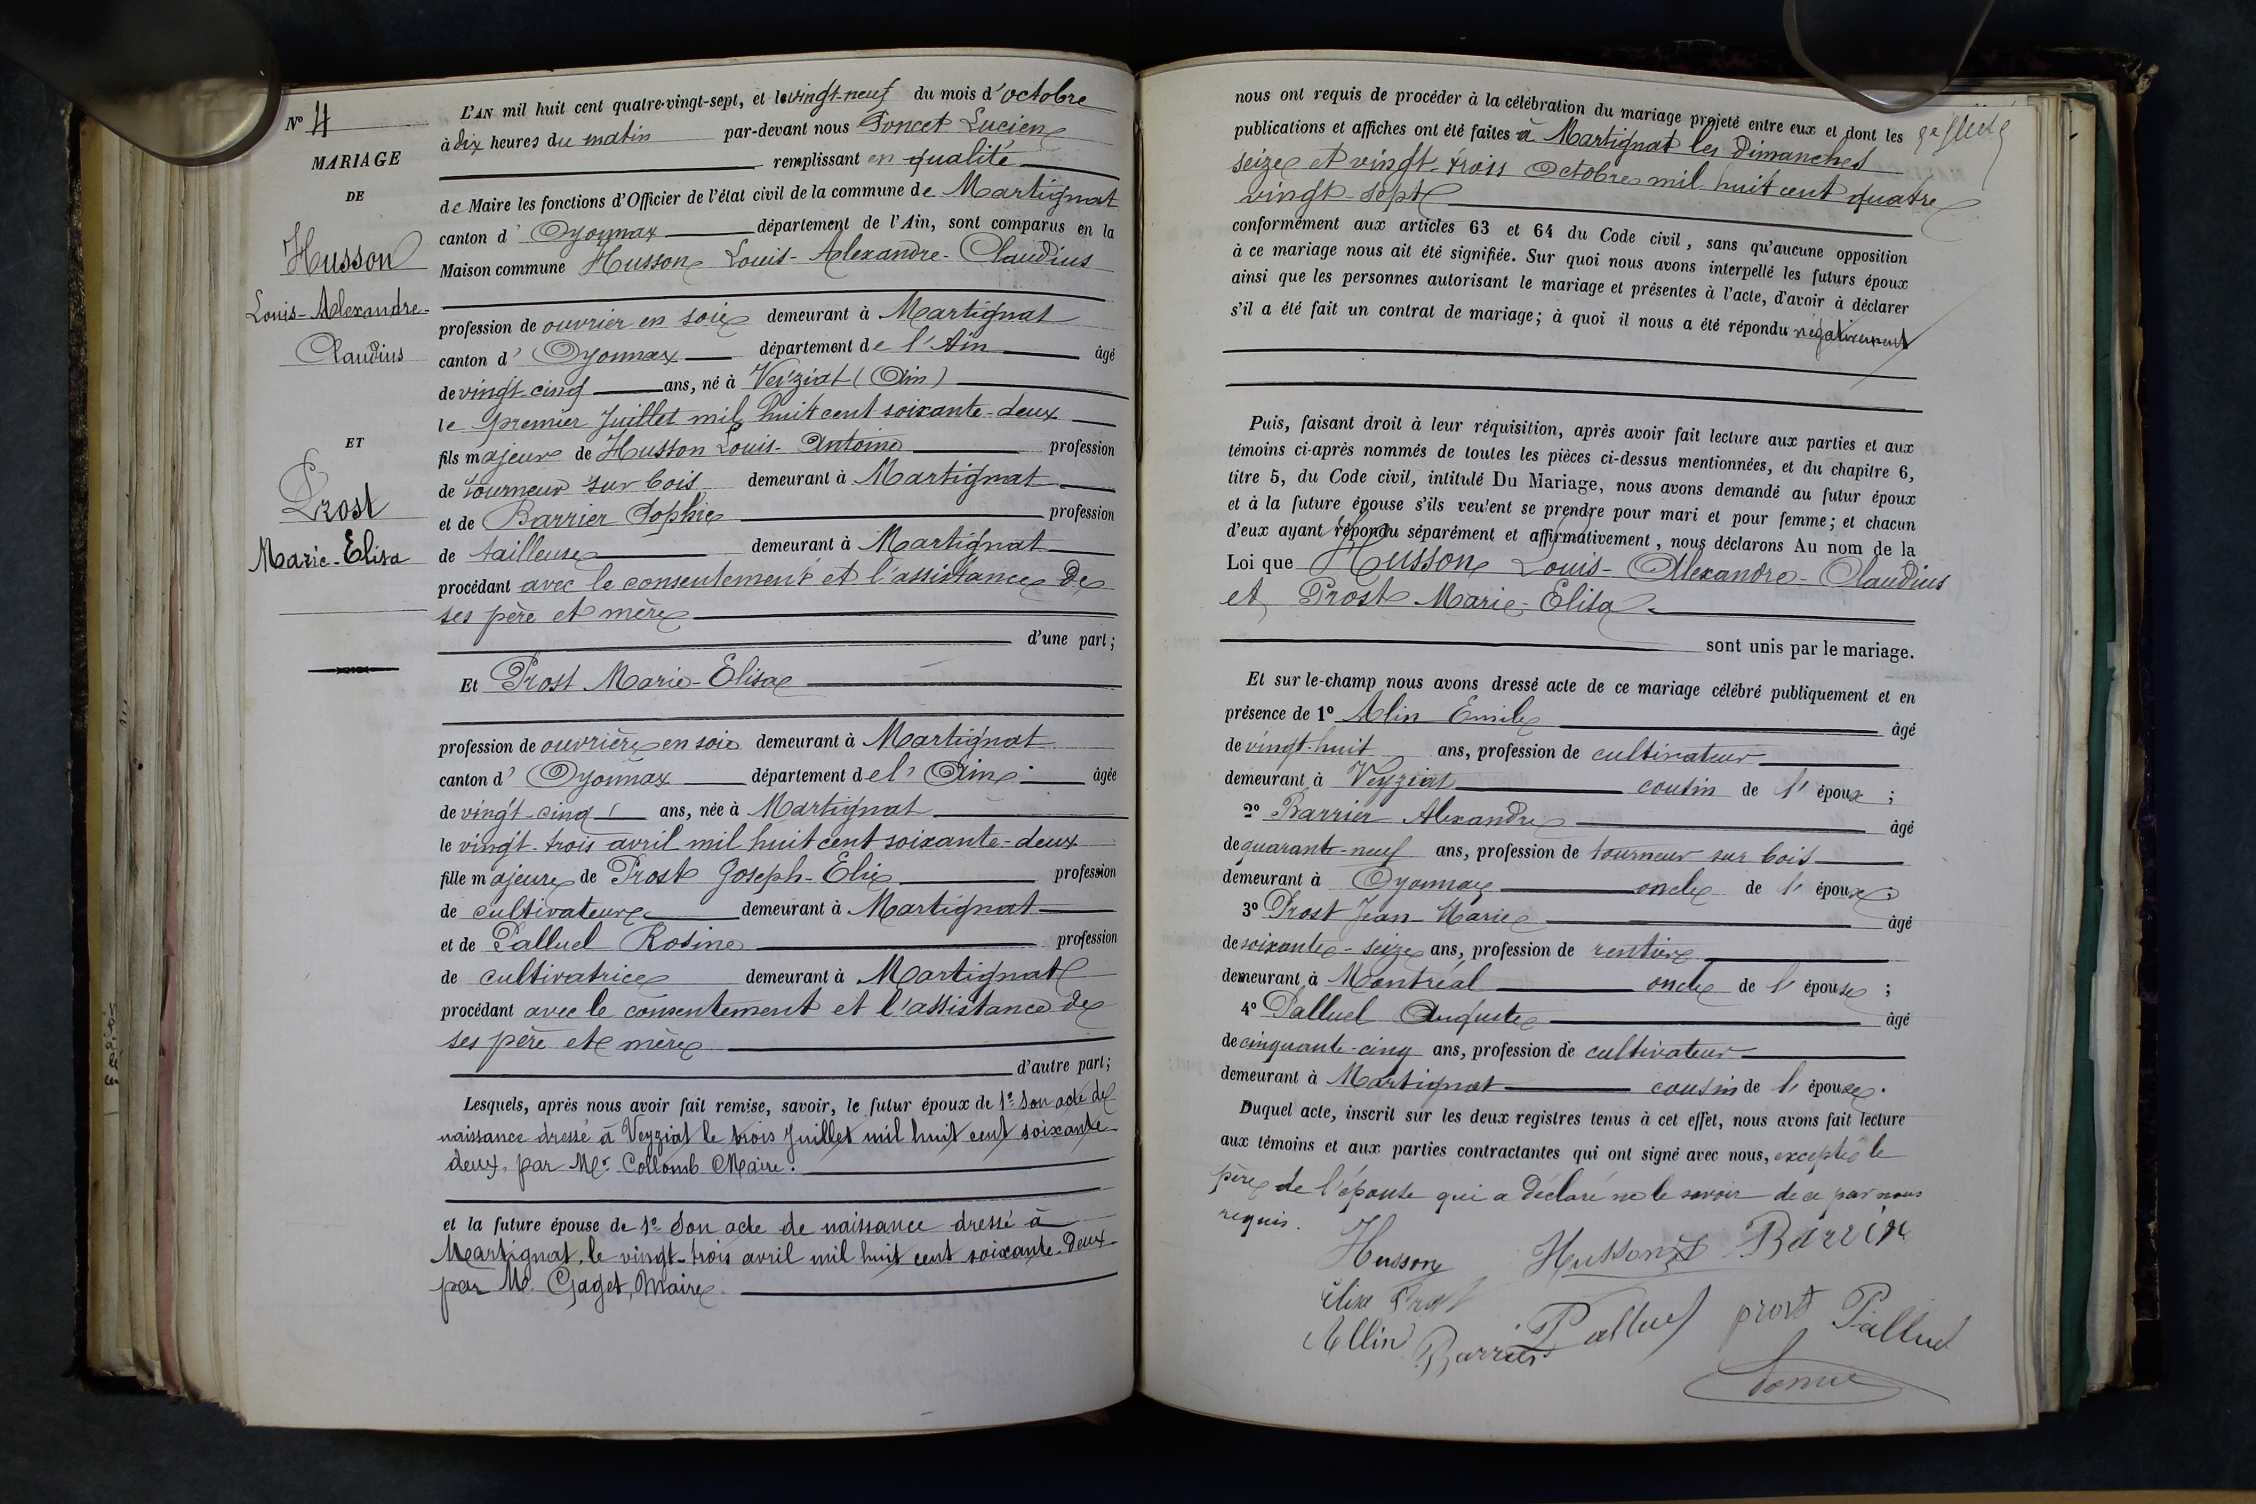 N° 4
MARIAGE
DE
Husson
Louis-Alexandre-
Claudius
ET
Prost
Marie-Elisa
L'AN mil huit cent quatre-vingt-sept, et le vingt-neuf du mois d'octobre
à dix heures du matin par-devant nous Poncet Lucien
remplissant en qualité
de Maire les fonctions d'Officier de l'état civil de la commune de Martignat
canton d' Oyonnax département de l'Ain, sont comparus en la
Maison commune Husson Louis-Alexandre-Claudius
profession de ouvrier en soie demeurant à Martignat
canton d' Oyonnax département de l'Ain âgé
de vingt-cinq ans, né à Veyziat (Ain)
le premier Juillet mil huit cent soixante-deux
fils majeur de Husson Louis-Antoine profession
de tourneur sur bois demeurant à Martignat
et de Barrier Sophie profession
de tailleuse demeurant à Martignat
procédant avec le consentement et l'assistance de
ses père et mère
d'une part;
Et Prost Marie-Elisa
profession de ouvrière en soie demeurant à Martignat
canton d' Oyonnax département de l'Ain âgée
de vingt-cinq ans, née à Martignat
le vingt-trois avril mil huit cent soixante-deux
fille majeure de Prost Joseph-Elie profession
de cultivateur demeurant à Martignat
et de Palluel Rosine profession
de cultivatrice demeurant à Martignat
procédant avec le consentement et l'assistance de
ses père et mère
d'autre part;
Lesquels, après nous avoir fait remise, savoir, le futur époux de 1° Son acte de
naissance dressé à Veyziat le trois Juillet mil huit cent soixante-
deux, par Mr. Collomb Maire.
et la future épouse de 1° Son acte de naissance dressé à
Martignat, le vingt-trois avril mil huit cent soixante-deux
par M. Gaget, Maire
nous ont requis de procéder à la célébration du mariage projeté entre eux et dont les
publications et affiches ont été faites à Martignat les Dimanches
seize et vingt-trois Octobre mil huit cent quatre
vingt-sept
conformément aux articles 63 et 64 du Code civil, sans qu'aucune opposition
à ce mariage nous ait été signifiée. Sur quoi nous avons interpellé les futurs époux
ainsi que les personnes autorisant le mariage et présentes à l'acte, d'avoir à déclarer
s'il a été fait un contrat de mariage; à quoi il nous a été répondu négativement
Puis, faisant droit à leur réquisition, après avoir fait lecture aux parties et aux
témoins ci-après nommés de toutes les pièces ci-dessus mentionnées, et du chapitre 6,
titre 5, du Code civil, intitulé Du Mariage, nous avons demandé au futur époux
et à la future épouse s'ils veulent se prendre pour mari et pour femme; et chacun
d'eux ayant répondu séparément et affirmativement, nous déclarons Au nom de la
Loi que Husson Louis-Alexandre-Claudius
et Prost Marie-Elisa
sont unis par le mariage.
Et sur-le-champ nous avons dressé acte de ce mariage célébré publiquement et en
présence de 1° Alin Emile âgé
de vingt-huit ans, profession de cultivateur
demeurant à Veyziat cousin de l'époux;
2° Barrier Alexandre âgé
de quarante-neuf ans, profession de tourneur sur bois
demeurant à Oyonnax oncle de l'époux;
3° Prost Jean-Marie âgé
de soixante-seize ans, profession de rentier
demeurant à Montréal oncle de l'épouse;
4° Palluel Auguste âgé
de cinquante-cinq ans, profession de cultivateur
demeurant à Martignat cousin de l'épouse.
Duquel acte, inscrit sur les deux registres tenus à cet effet, nous avons fait lecture
aux témoins et aux parties contractantes qui ont signé avec nous, excepté le
père de l'épouse qui a déclaré ne le savoir de ce par nous
requis.
Husson Husson Barrier
Elise Prost
Allin Barrier Palluel prost Palluel